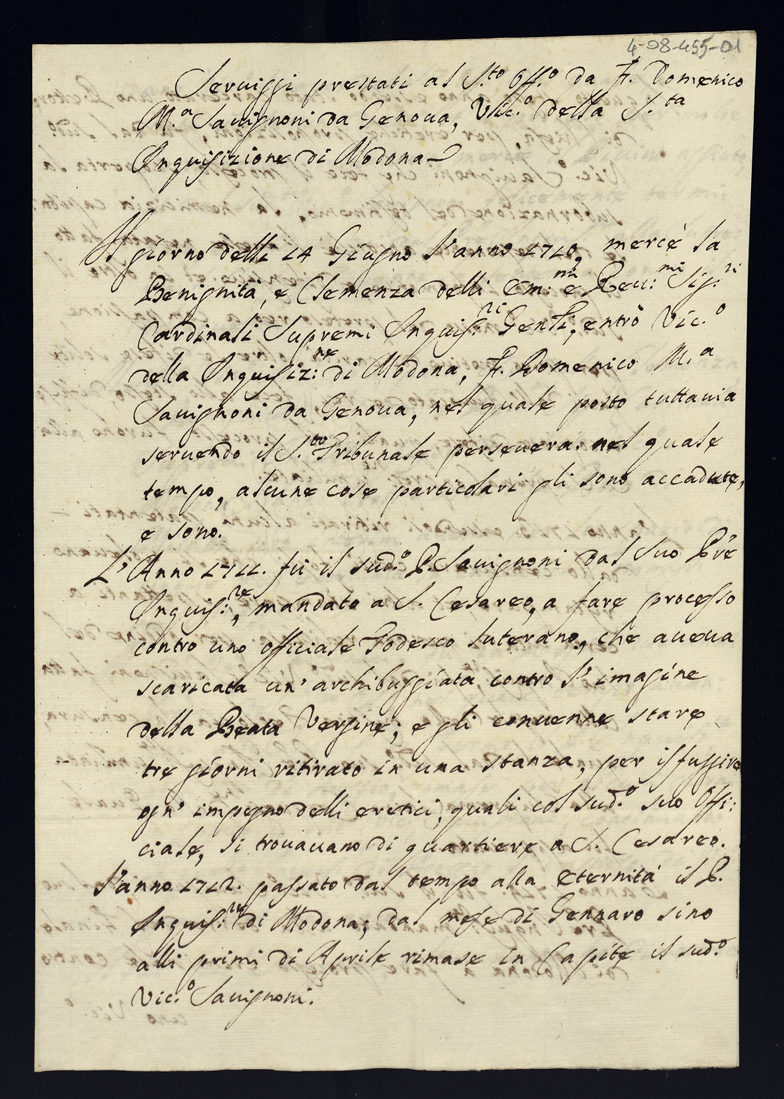 4-08-455-01
Seruiggi prestati al S.to Off.o da F. Domenico
M.a Sauignoni da Genoua, Vic.o della S.ta
Inquisizione di Modona
Il giorno delli 14 Giugno l'anno 1710, mercè la
Benignità, e Clemenza delli Em:mi e Reu:mi Sig:ri
Cardinali Supremi Inquis:ri Gen:li, entrò Vic.o
della Inquisiz:ne di Modona, F. Domenico M.a
Sauignoni da Genoua, nel quale posto tuttauia
seruendo il S.to Tribunale perseuera: nel quale
tempo, alcune cose particolari gli sono accadute,
e sono.
L'Anno 1711. fù il sud.o P. Sauignoni dal suo P're
Inquis:re, mandato a S. Cesareo, a fare processo
contro uno officiale Todesco luterano, che aueua
scaricata un' archibuggiata contro l'imagine
della Beata Vergine; e gli conuenne stare
tre giorni ritirato in una stanza, per isfuggire
ogn' impegno delli eretici, quali col sud.o suo Offi:
ciale, si trouauano di quartiere a S. Cesareo.
L'anno 1712. passato dal tempo alla eternità il P.
Inquis:re di Modona; dal mese di Gennaro sino
alli primi di Aprile rimase in Capite il sud.o
Vic.o Sauignoni.